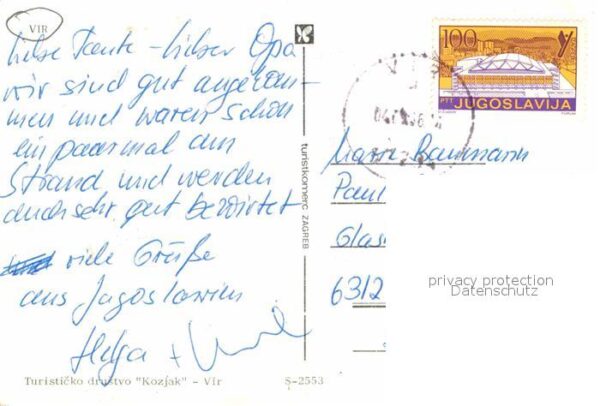 VIR
Liebe Tante - lieber Opa
wir sind gut angekom-
men und waren schon
ein paarmal am
Strand und werden
auch sehr gut bewirtet
viele Grüße
aus Jugoslawien
Helga +
Turističko društvo "Kozjak" - Vir
S-2553
turistkomerc ZAGREB
100
PTT JUGOSLAVIJA
Baumann
Paul
Glas
6312
privacy protection
Datenschutz